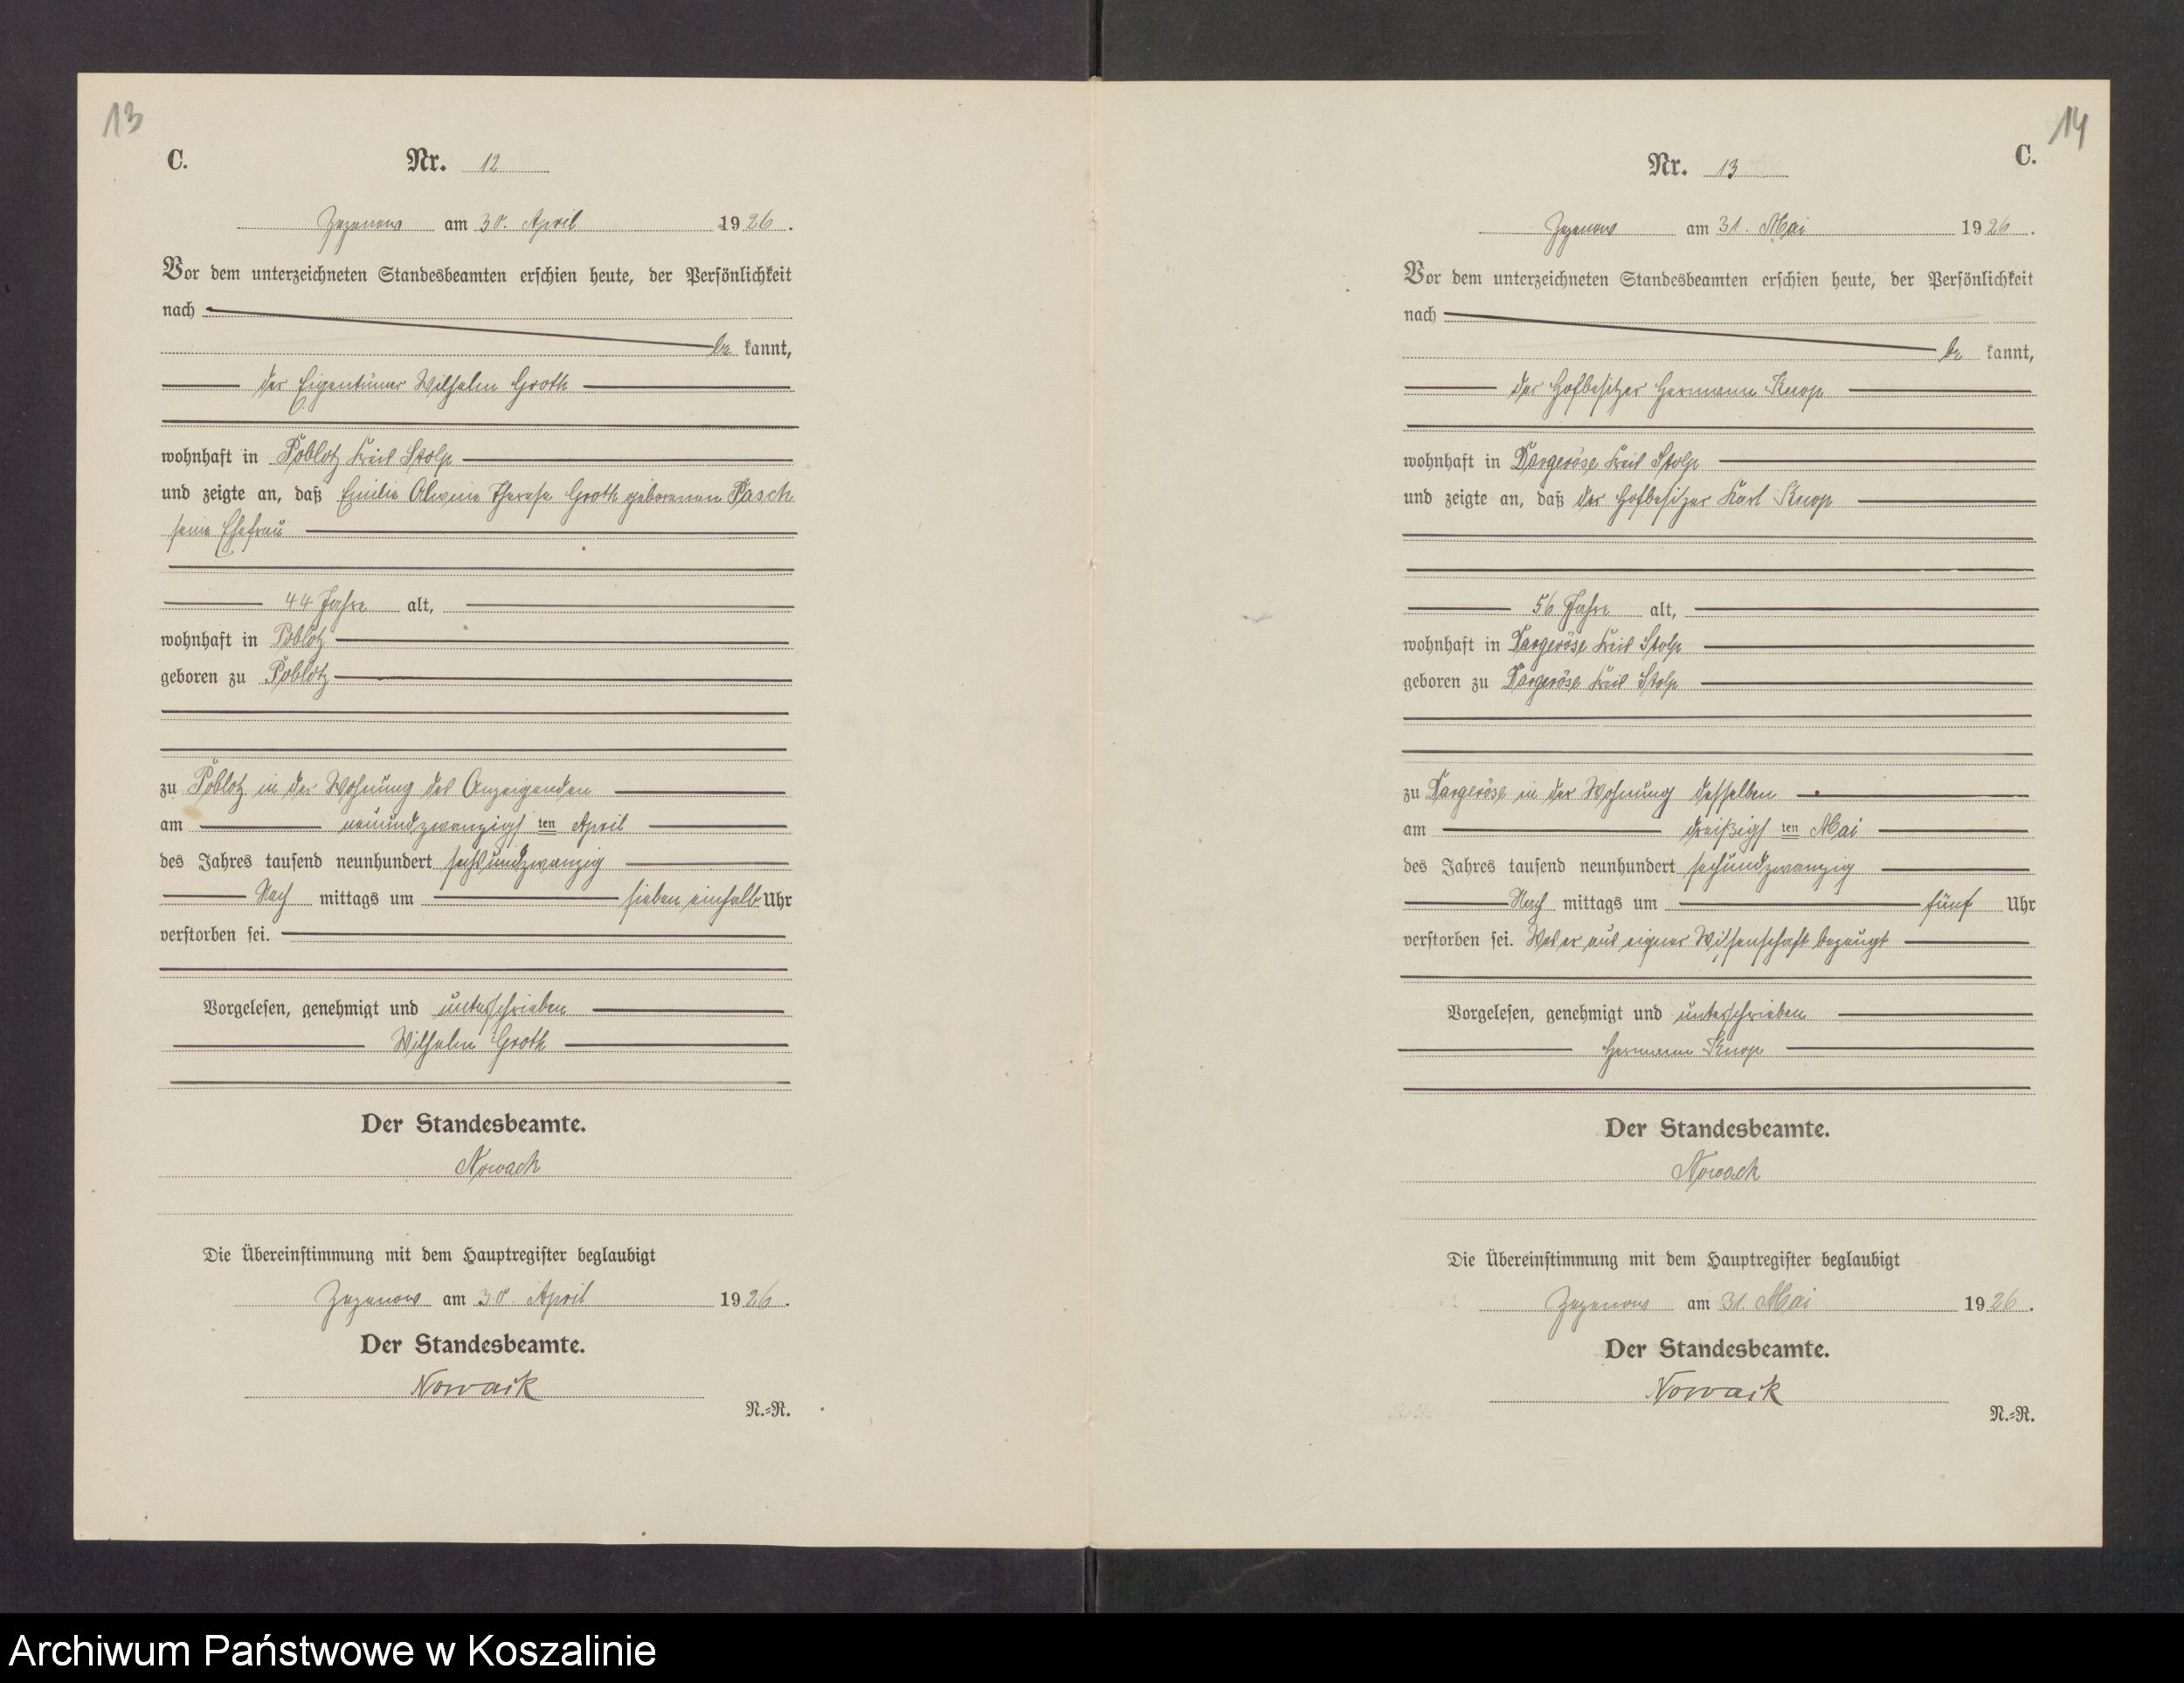 13
C.
Nr. 12
Zezenow am 30. April 1926.
Vor dem unterzeichneten Standesbeamten erschien heute, der Persönlichkeit
nach
be kannt,
der Eigentümer Wilhelm Groth
wohnhaft in Poblotz Kreis Stolp
und zeigte an, daß Emilie Alwine Therese Groth geborenen Pasch
seine Ehefrau
44 Jahre alt,
wohnhaft in Poblotz
geboren zu Poblotz
zu Poblotz in der Wohnung des Anzeigenden
am neunundzwanzigsten April
des Jahres tausend neunhundert sechsundzwanzig
Nach mittags um sieben einhalb Uhr
verstorben sei.
Vorgelesen, genehmigt und unterschrieben
Wilhelm Groth
Der Standesbeamte.
Nowack
Die Übereinstimmung mit dem Hauptregister beglaubigt
Zezenow am 30. April 1926.
Der Standesbeamte.
Nowack
N.=R.
14
C.
Nr. 13
Zezenow am 31. Mai 1926.
Vor dem unterzeichneten Standesbeamten erschien heute, der Persönlichkeit
nach
be kannt,
der Hofbesitzer Hermann Knop
wohnhaft in Dargeröse Kreis Stolp
und zeigte an, daß der Hofbesitzer Karl Knop
56 Jahre alt,
wohnhaft in Dargeröse Kreis Stolp
geboren zu Dargeröse Kreis Stolp
zu Dargeröse in der Wohnung desselben
am dreißigsten Mai
des Jahres tausend neunhundert sechundzwanzig
Nach mittags um fünf Uhr
verstorben sei. Was er aus eigner Wissenschaft bezeugt
Vorgelesen, genehmigt und unterschrieben
Hermann Knop
Der Standesbeamte.
Nowack
Die Übereinstimmung mit dem Hauptregister beglaubigt
Zezenow am 31. Mai 1926.
Der Standesbeamte.
Nowack
N.=R.
Archiwum Państwowe w Koszalinie